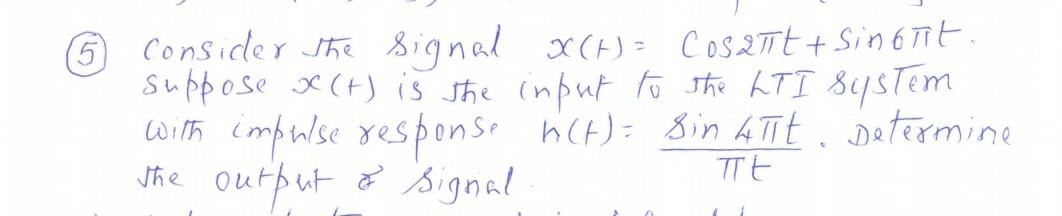 ⑤ Consider the signal x(t) = Cos2πt + Sin6πt.
Suppose x(t) is the input to the LTI System
with impulse response h(t) = Sin 4πt / πt. Determine
the output signal